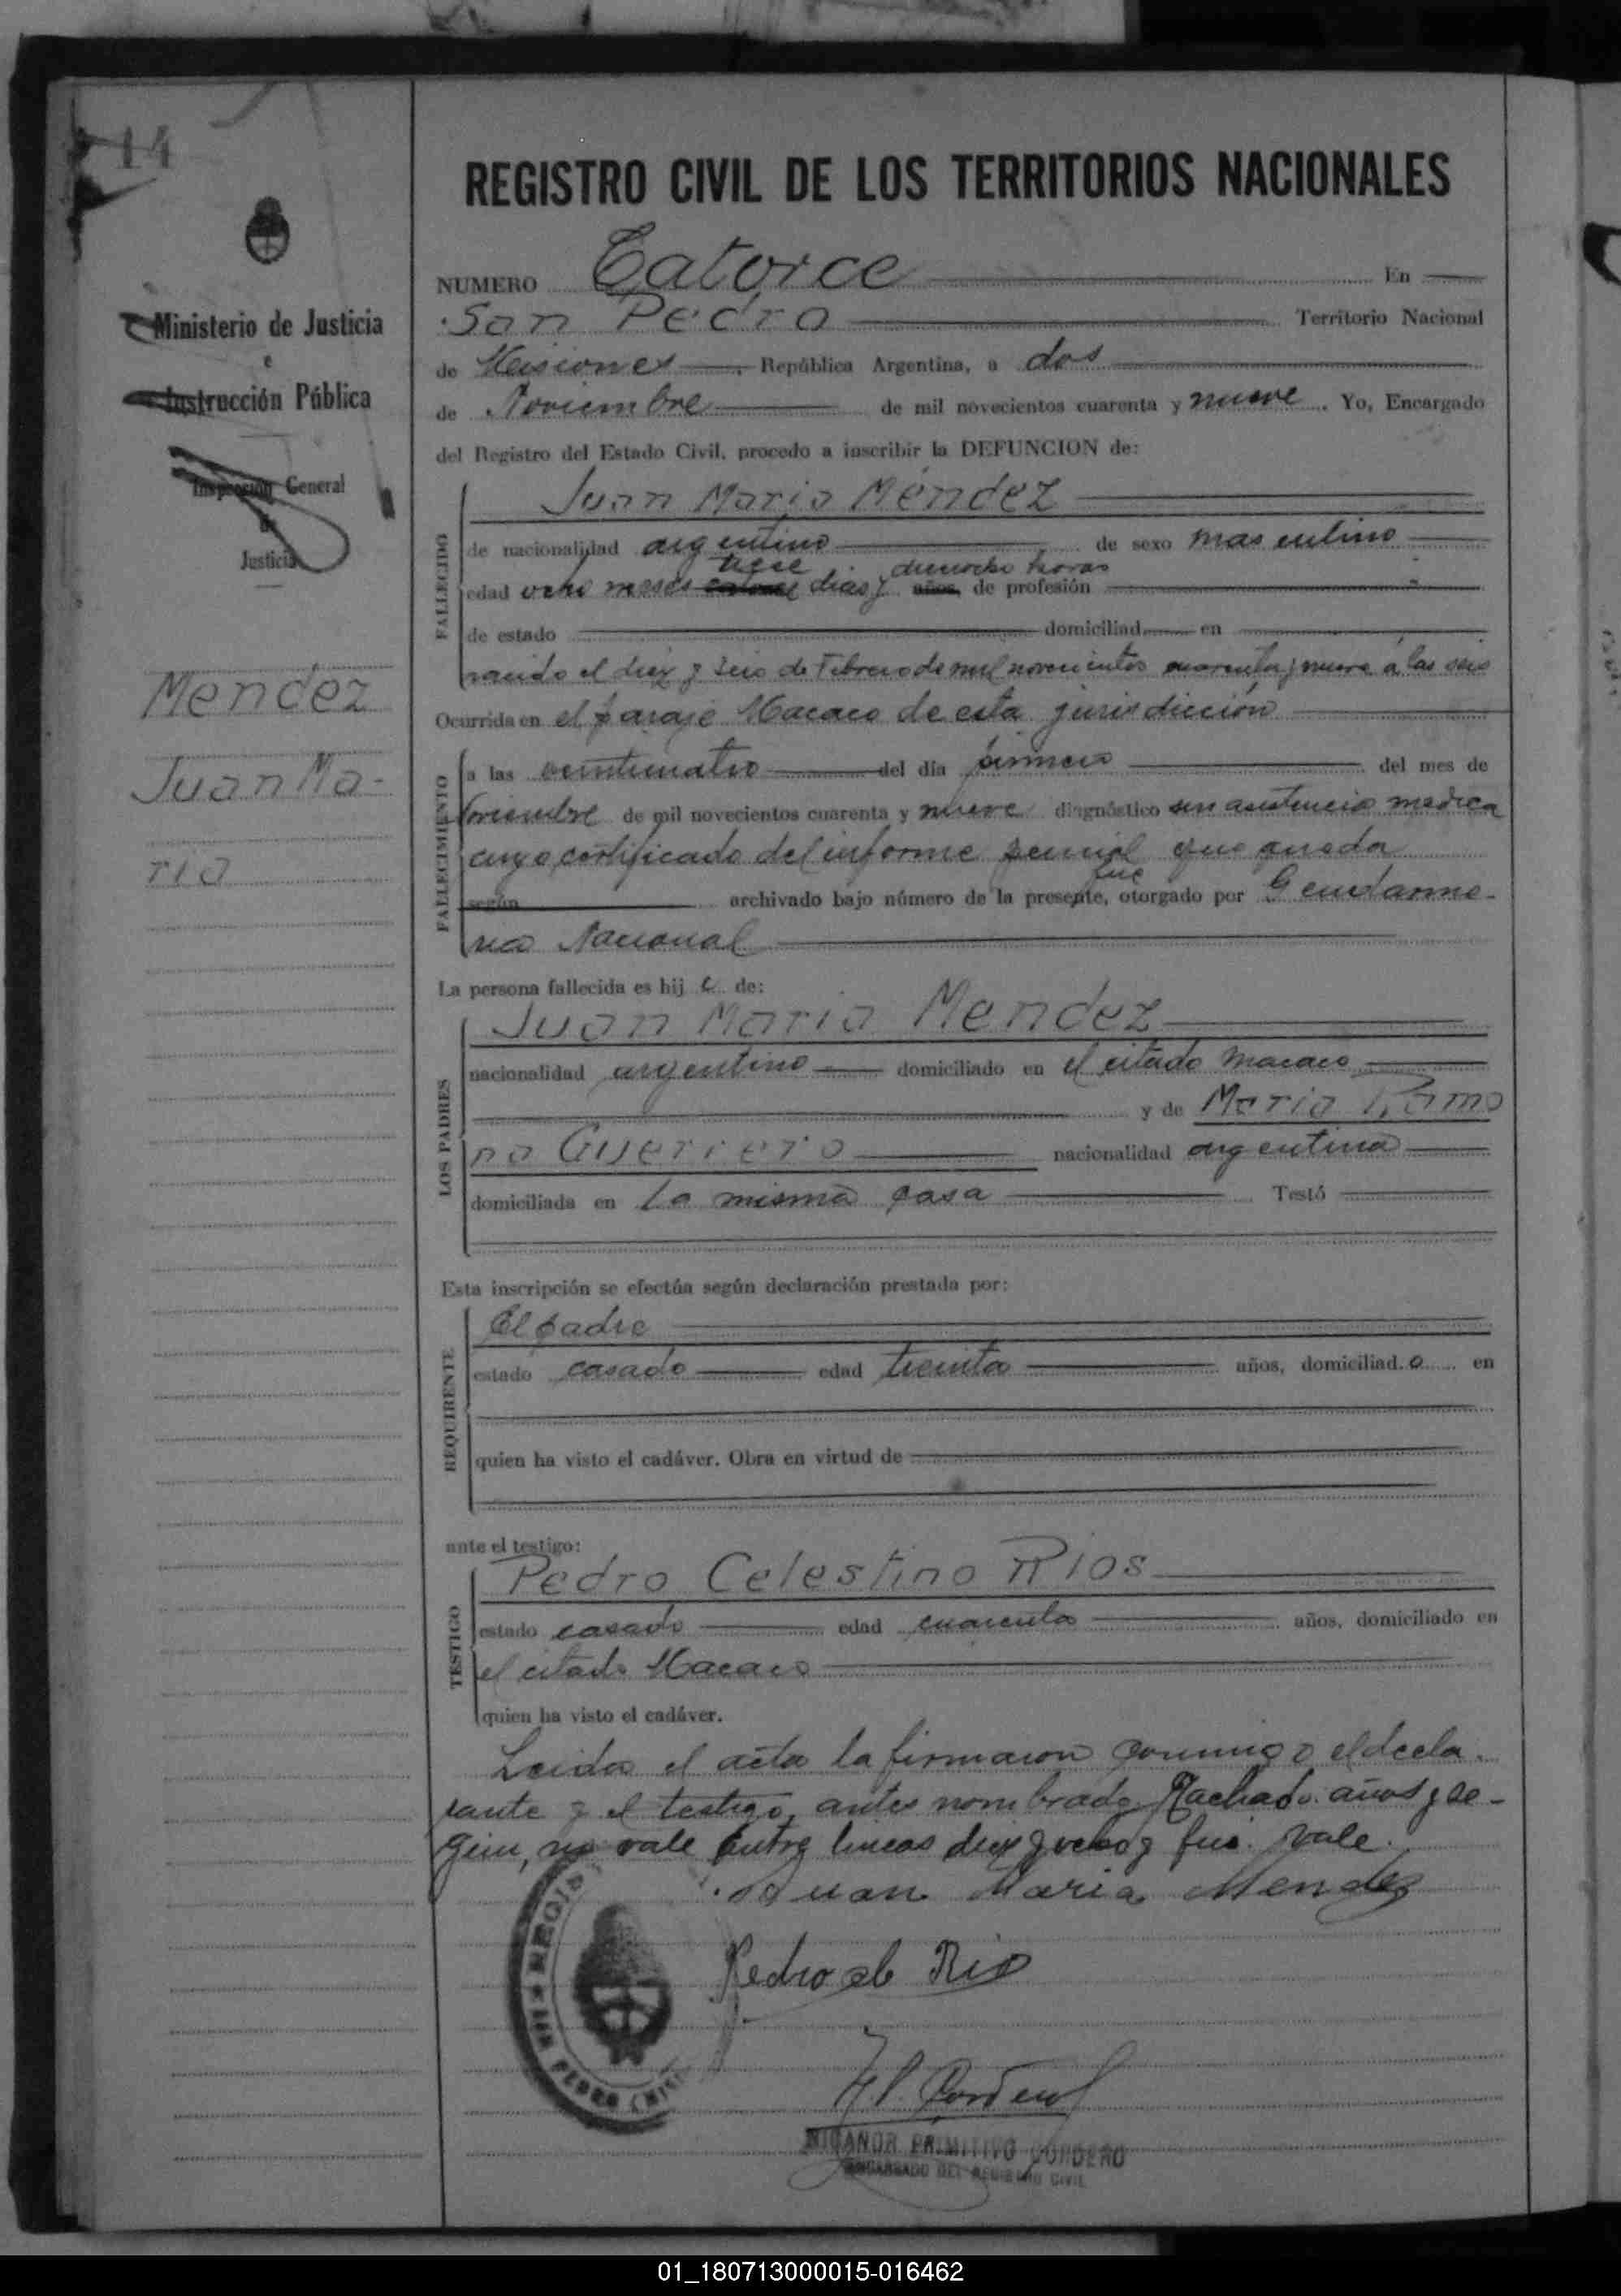 14
REGISTRO CIVIL DE LOS TERRITORIOS NACIONALES
Ministerio de Justicia
e
Instrucción Pública
Inspección General
de
Justicia
Mendez
Juan Ma-
ria
NUMERO Catorce En
San Pedro Territorio Nacional
de Misiones República Argentina, a dos
de Noviembre de mil novecientos cuarenta y nueve. Yo, Encargado
del Registro del Estado Civil, procedo a inscribir la DEFUNCION de:
FALLECIDO
Juan Maria Méndez
de nacionalidad argentino de sexo masculino
trece dieciocho horas
edad ocho meses dias y años, de profesión
de estado domiciliad en
nacido el diez y seis de Febrero de mil novecientos cuarenta y nueve a las seis
Ocurrida en el paraje Macaco de esta jurisdicción
FALLECIMIENTO
a las veinticuatro del día primero del mes de
Noviembre de mil novecientos cuarenta y nueve diagnóstico sin asistencia medica
cuyo certificado del informe que queda
fue
según archivado bajo número de la presente, otorgado por Gendarme-
ria Nacional
La persona fallecida es hij o de:
LOS PADRES
Juan Maria Mendez
nacionalidad argentino domiciliado en el citado Macaco
y de Maria Ramo
na Guerrero nacionalidad argentina
domiciliada en la misma casa Testó
Esta inscripción se efectúa según declaración prestada por:
REQUIRENTE
El padre
estado casado edad treinta años, domiciliad o en
quien ha visto el cadáver. Obra en virtud de
ante el testigo:
TESTIGO
Pedro Celestino Rios
estado casado edad cuarenta años, domiciliado en
el citado Macaco
quien ha visto el cadáver.
Leida el acta la firmaron conmigo el decla-
rante y el testigo, antes nombrado Tachado: años y se-
gún, no vale Entre lineas diez y ocho y fué. Vale.
Juan Maria Mendez
Pedro del Rio
REGIS
SAN PEDRO (MIS
Cordero
NICANOR PRIMITIVO CORDERO
ENCARGADO DEL REGISTRO CIVIL
01_180713000015-016462